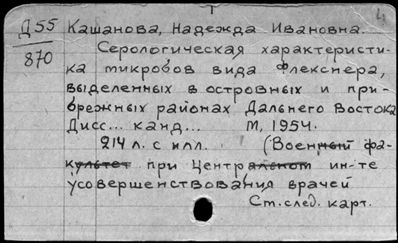 Д55 Кашанова, Надежда Ивановна.
870 Серологическая характеристи-
ка микробов вида Флекснера,
выделенных в островных и при-
брежных районах Дальнего Востока
Дисс... канд... М, 1954.
214 л. с илл. (Военный фа-
культет при Центральном ин-те
усовершенствования врачей
См. след. карт.